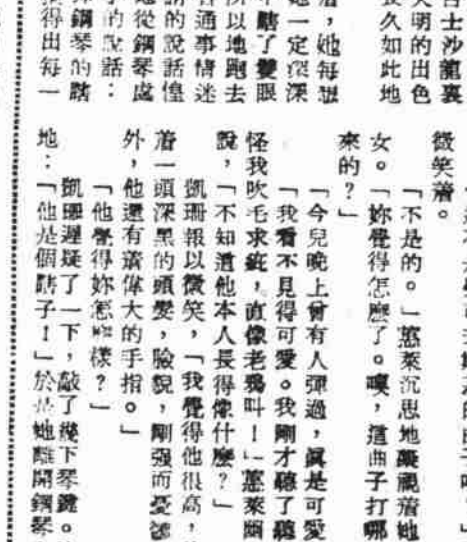 士沙龍裏
明的出色
久如此地
，她每想
一定深深
瞎了雙眼
所以地跑去
普通事情迷
的說話惶
她從鋼琴處
的說話：
鋼琴的瞎
得出每一
微笑着。
「不是的。」蕙萊沉思地凝視着她
女。「妳覺得怎麼了。噢，這曲子打哪
來的？」
「今兒晚上曾有人彈過，眞是可愛
「我看不見得可愛。我剛才聽了聽
怪我吹毛求疵，直像老鴉叫！」蕙萊
說，「不知道他本人長得像什麼？」
凱珊報以微笑，「我覺得他很高，
着一頭深黑的頭髮，臉貌，剛强而憂
外，他還有着偉大的手指。」
「他覺得妳怎麼樣？」
凱珊遲疑了一下，敲了幾下琴鍵。
地：「他是個瞎子！」於是她離開鋼琴